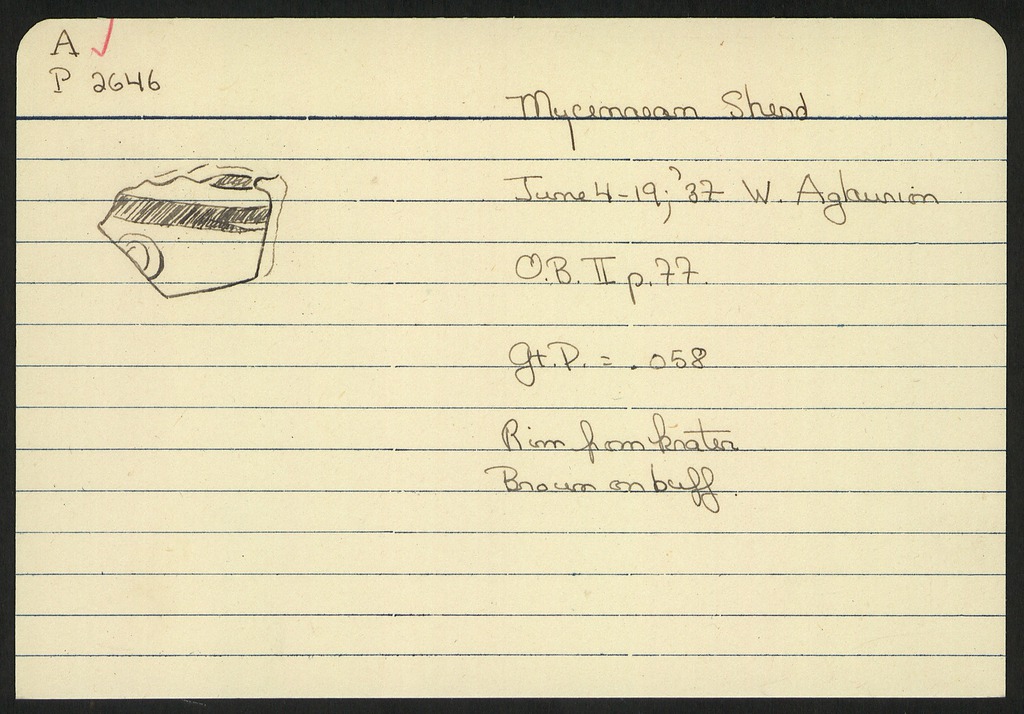 A ✓
P 2646
Mycenaean Sherd
June 4-19, '37 W. Aglaurion
O.B. II p. 77.
Gt. D. = .058
Rim from krater
Brown on buff.